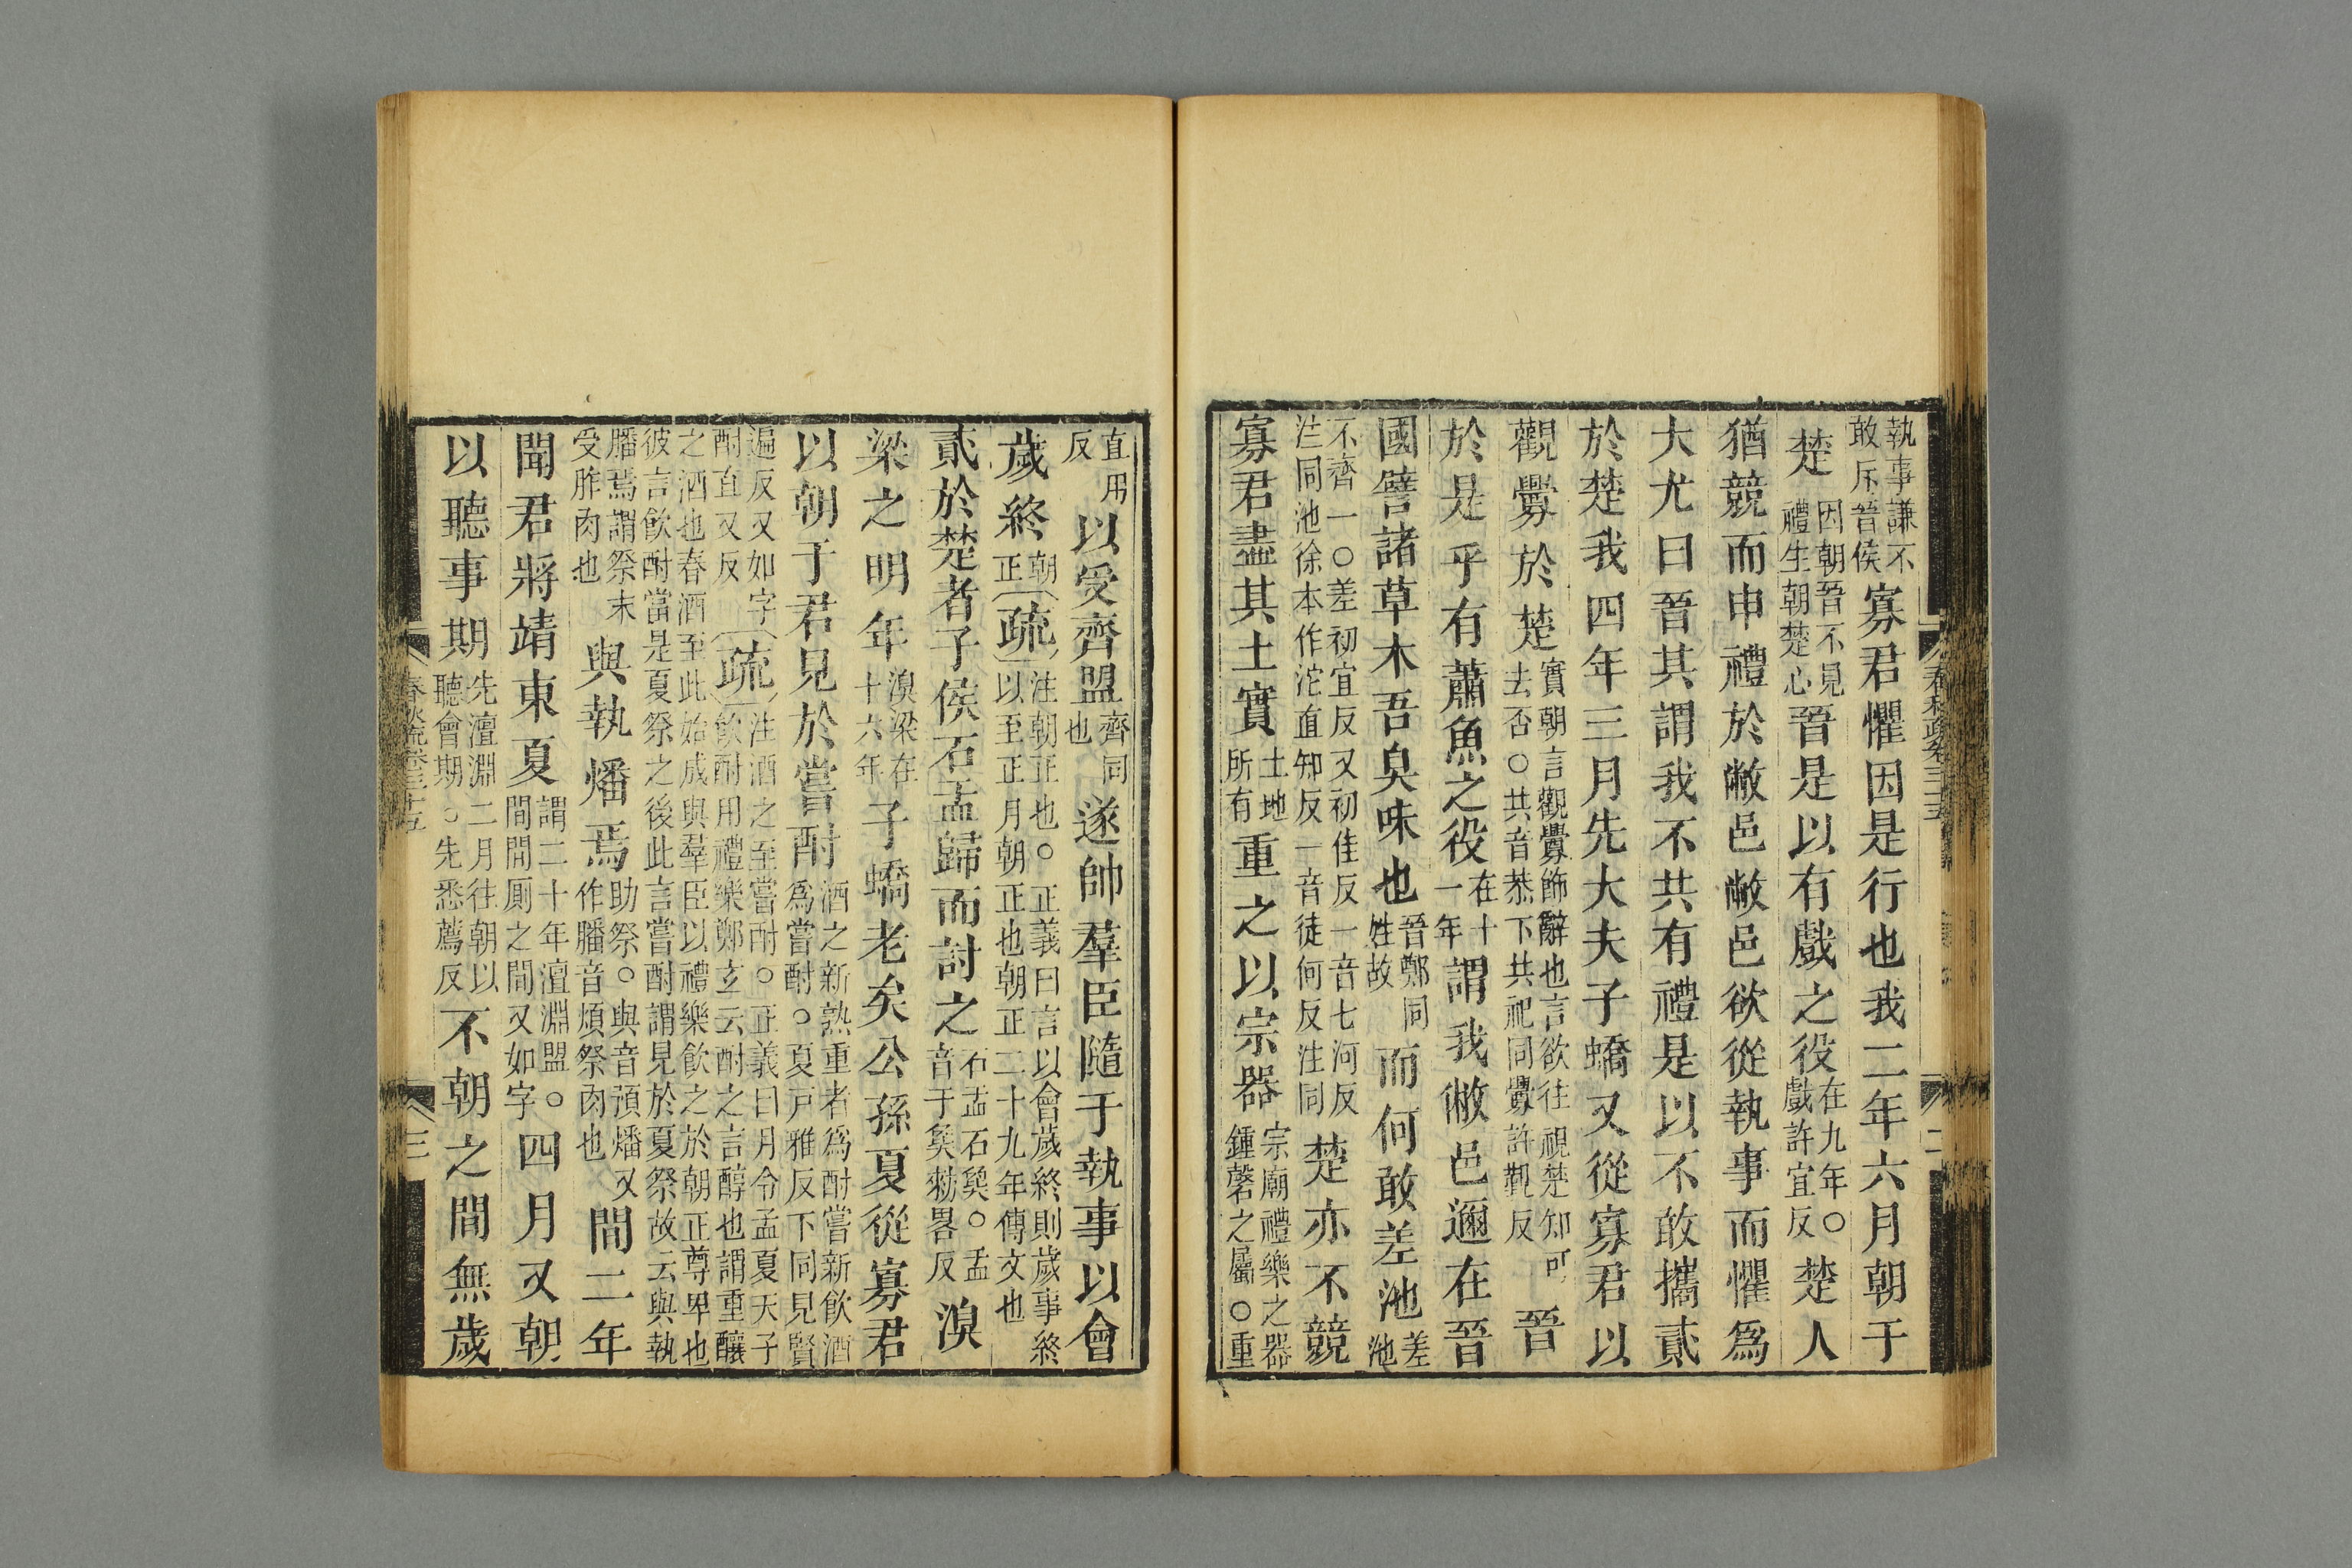 執事謙不敢斥晉侯寡君懼因是行也我二年六月朝于
楚因朝晉不見禮生朝楚心晉是以有戲之役在九年○戲許宜反楚人
猶競而申禮於敝邑敝邑欲從執事而懼爲
大尤曰晉其謂我不共有禮是以不敢攜貳
於楚我四年三月先大夫子蟜又從寡君以
觀釁於楚實朝言觀釁飾辭也言欲往視楚知可去否○共音恭下共祀同釁許覲反晉
於是乎有蕭魚之役在十一年謂我敝邑邇在晉
國譬諸草木吾臭味也晉鄭同姓故而何敢差池差池
不齊一○差初宜反又初佳反一音七河反注同池徐本作沱直知反一音徒何反注同楚亦不競
寡君盡其土實土地所有重之以宗器宗廟禮樂之器鍾磬之屬○重
直用反以受齊盟齊同也遂帥羣臣隨于執事以會
歲終朝正疏注朝正也○正義曰言以會歲終則歲事終以至正月朝正也朝正二十九年傳文也
貳於楚者子侯石盂歸而討之石盂石㚟○盂音于㚟勑畧反湨
梁之明年湨梁在十六年子蟜老矣公孫夏從寡君
以朝于君見於嘗酎酒之新熟重者爲酎嘗新飲酒爲嘗酎○夏戸雅反下同見賢
遍反又如字酎直又反疏注酒之至嘗酎○正義曰月令孟夏天子飲酎用禮樂鄭玄云酎之言醇也謂重釀
之酒也春酒至此始成與羣臣以禮樂飲之於朝正尊卑也彼言飲酎當是夏祭之後此言嘗酎謂見於夏祭故云與執
膰焉謂祭末受胙肉也與執燔焉助祭○與音預燔又作膰音煩祭肉也間二年
聞君將靖東夏謂二十年澶淵盟○間間厠之間又如字四月又朝
以聽事期先澶淵二月往朝以聽會期○先悉薦反不朝之間無歲
春秋疏卷三十五
二
春秋疏卷三十五
三